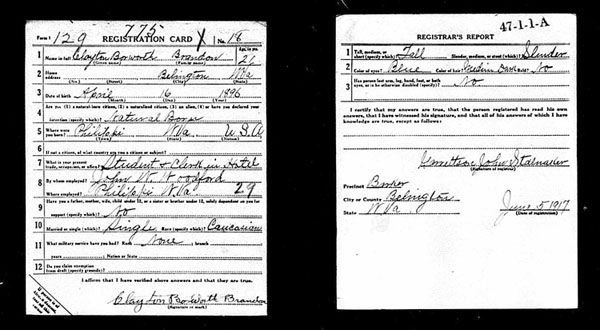 Form 1
775
REGISTRATION CARD
129
No. 18
1 Name in full Clayton Bosworth Brandon
(Given name) (Family name)
Age, in yrs. 21
2 Home address Belington WVa
(No.) (Street) (City) (State)
3 Date of birth April 16 1896
(Month) (Day) (Year)
4 Are you (1) a natural-born citizen, (2) a naturalized citizen, (3) an alien, (4) or have you declared your
intention (specify which)? Natural Born
5 Where were you born? Philippi WVa. U.S.A
(Town) (State) (Nation)
6 If not a citizen, of what country are you a citizen or subject?
7 What is your present trade, occupation, or office? Student & Clerk in Hotel
8 By whom employed? John W. Woodford
Where employed? Philippi W.Va. 29
9 Have you a father, mother, wife, child under 12, or a sister or brother under 12, solely dependent on you for
support (specify which)? No
10 Married or single (which)? Single Race (specify which)? Caucasian
11 What military service have you had? Rank None ; branch
years Nation or State
12 Do you claim exemption from draft (specify grounds)?
I affirm that I have verified above answers and that they are true.
Clayton Bosworth Brandon
(Signature or mark)
47-1-1-A
REGISTRAR'S REPORT
1 Tall, medium, or short (specify which)? Tall Slender, medium, or stout (which)? Slender
2 Color of eyes? Blue Color of hair? Medium Bald? No
3 Has person lost arm, leg, hand, foot, or both eyes, or is he otherwise disabled (specify)? No
I certify that my answers are true, that the person registered has read his own
answers, that I have witnessed his signature, and that all of his answers of which I have
knowledge are true, except as follows:
John Stalnaker
(Signature of registrar)
Precinct Barker
City or County Belington
State WVa
June 5 1917
(Date of registration)